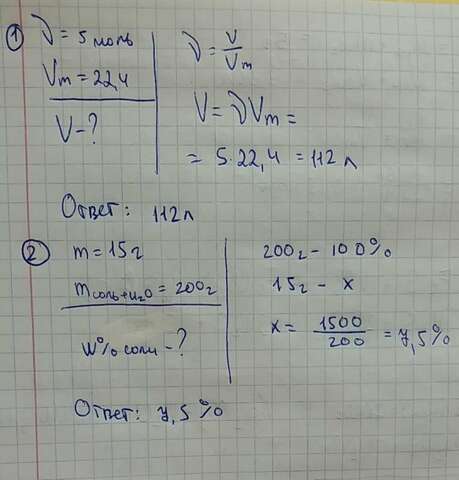 1 ν = 5 моль
Vm = 22,4
V - ?
ν = V/Vm
V = νVm =
= 5·22,4 = 112 л
Ответ: 112 л
2 m = 15 г
mсоль+H2O = 200г
W% соли - ?
200г - 100%
15г - x
x = 1500/200 = 7,5%
Ответ: 7,5%